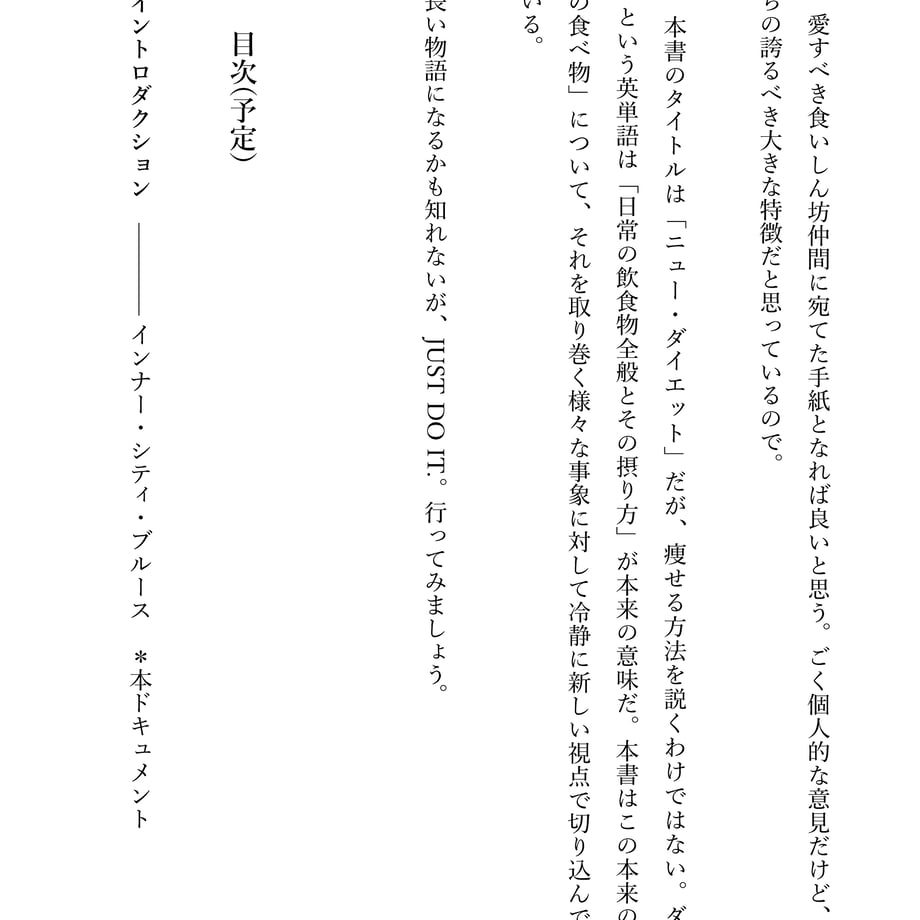 愛すべき食いしん坊仲間に宛てた手紙となれば良いと思う。ごく個人的な意見だけど、
の誇るべき大きな特徴だと思っているので。
本書のタイトルは「ニュー・ダイエット」だが、痩せる方法を説くわけではない。ダ
という英単語は「日常の飲食物全般とその摂り方」が本来の意味だ。本書はこの本来の
の食べ物」について、それを取り巻く様々な事象に対して冷静に新しい視点で切り込んで
いる。
長い物語になるかも知れないが、JUST DO IT.。行ってみましょう。
目次(予定)
イントロダクション ――― インナー・シティ・ブルース *本ドキュメント